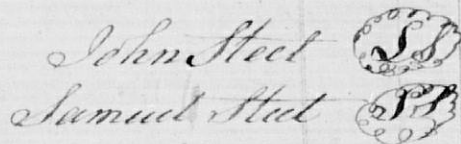 John Steel LS
Samuel Steel LS